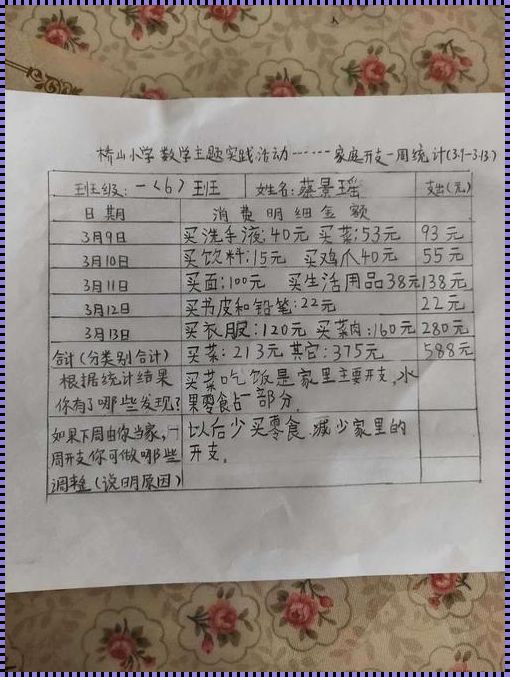 桥山小学数学主题实践活动……家庭开支一周统计(3.9-3.13)
班级:一(6)班 姓名:蔡景瑶 支出(元)
日期 消费明细金额
3月9日 买洗手液:40元 买菜:53元 93元
3月10日 买饮料:15元 买鸡爪40元 55元
3月11日 买面:100元 买生活用品38元 138元
3月12日 买书皮和铅笔:22元 22元
3月13日 买衣服:120元 买菜肉:160元 280元
合计(分类别合计) 买菜:213元 其它:375元 588元
根据统计结果 买菜吃饭是家里主要开支,水
你有了哪些发现? 果零食占一部分.
如果下周由你当家,一 以后少买零食.减少家里的
周开支你可做哪些 开支.
调整(说明原因)